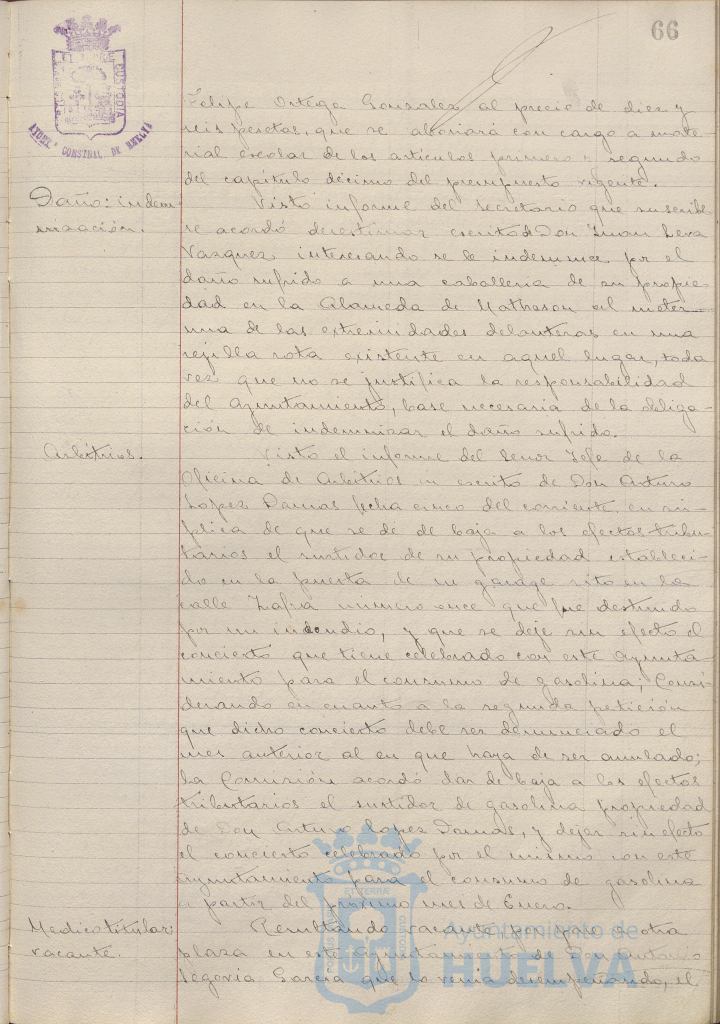 66
AYUNT. CONSTNAL. DE HUELVA
CUSTODIA
Felipe Ortega Gonzalez al precio de diez y
seis pesetas, que se abonará con cargo a mate-
rial escolar de los artículos primero y segundo
del capítulo décimo del presupuesto vigente.
Daño: indem-
nización.
Visto informe del Secretario que suscribe
se acordó desestimar escrito de Don Juan Lera
Vazquez interesando se le indemnice por el
daño sufrido a una caballeria de su propie-
dad en la Alameda de Matheson al meter
una de las extremidades delanteras en una
rejilla rota existente en aquel lugar, toda
vez que no se justifica la responsabilidad
del Ayuntamiento, base necesaria de la obliga-
ción de indemnizar el daño sufrido.
Arbitrios.
Visto el informe del Señor Jefe de la
Oficina de Arbitrios en escrito de Don Arturo
Lopez Damas fecha cinco del corriente, en sú-
plica de que se dé de baja a los efectos tribu-
tarios el surtidor de su propiedad estableci-
do en la puerta de su garage sito en la
calle Zafra número once que fue destruido
por un incendio, y que se deje sin efecto el
concierto que tiene celebrado con este Ayunta-
miento para el consumo de gasolina; Consi-
derando en cuanto a la segunda petición
que dicho concierto debe ser denunciado el
mes anterior al en que haya de ser anulado;
la Comisión acordó dar de baja a los efectos
tributarios el surtidor de gasolina propiedad
de Don Arturo Lopez Damas, y dejar sin efecto
el concierto celebrado por el mismo con este
Ayuntamiento para el consumo de gasolina
a partir del próximo mes de Enero.
Medico titular:
vacante.
Resultando vacante por pase a otra
plaza en este Ayuntamiento de Don Antonio
Segovia Garcia que la venía desempeñando, el
Ayuntamiento de
HUELVA